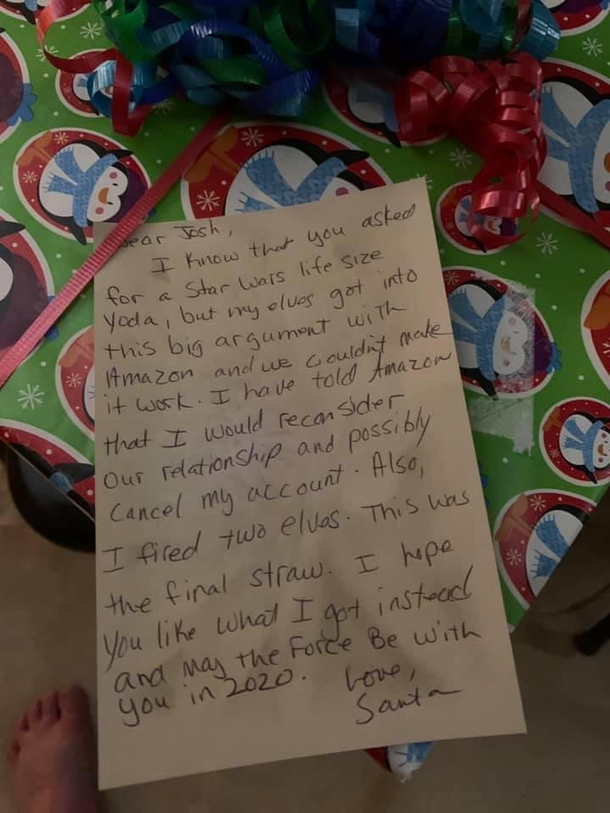 Dear Josh,
I know that you asked
for a Star Wars life size
Yoda, but my elves got into
this big argument with
Amazon and we couldn't make
it work. I have told Amazon
that I would reconsider
our relationship and possibly
cancel my account. Also,
I fired two elves. This was
the final straw. I hope
you like what I got instead
and may the Force Be with
you in 2020. Love,
Santa